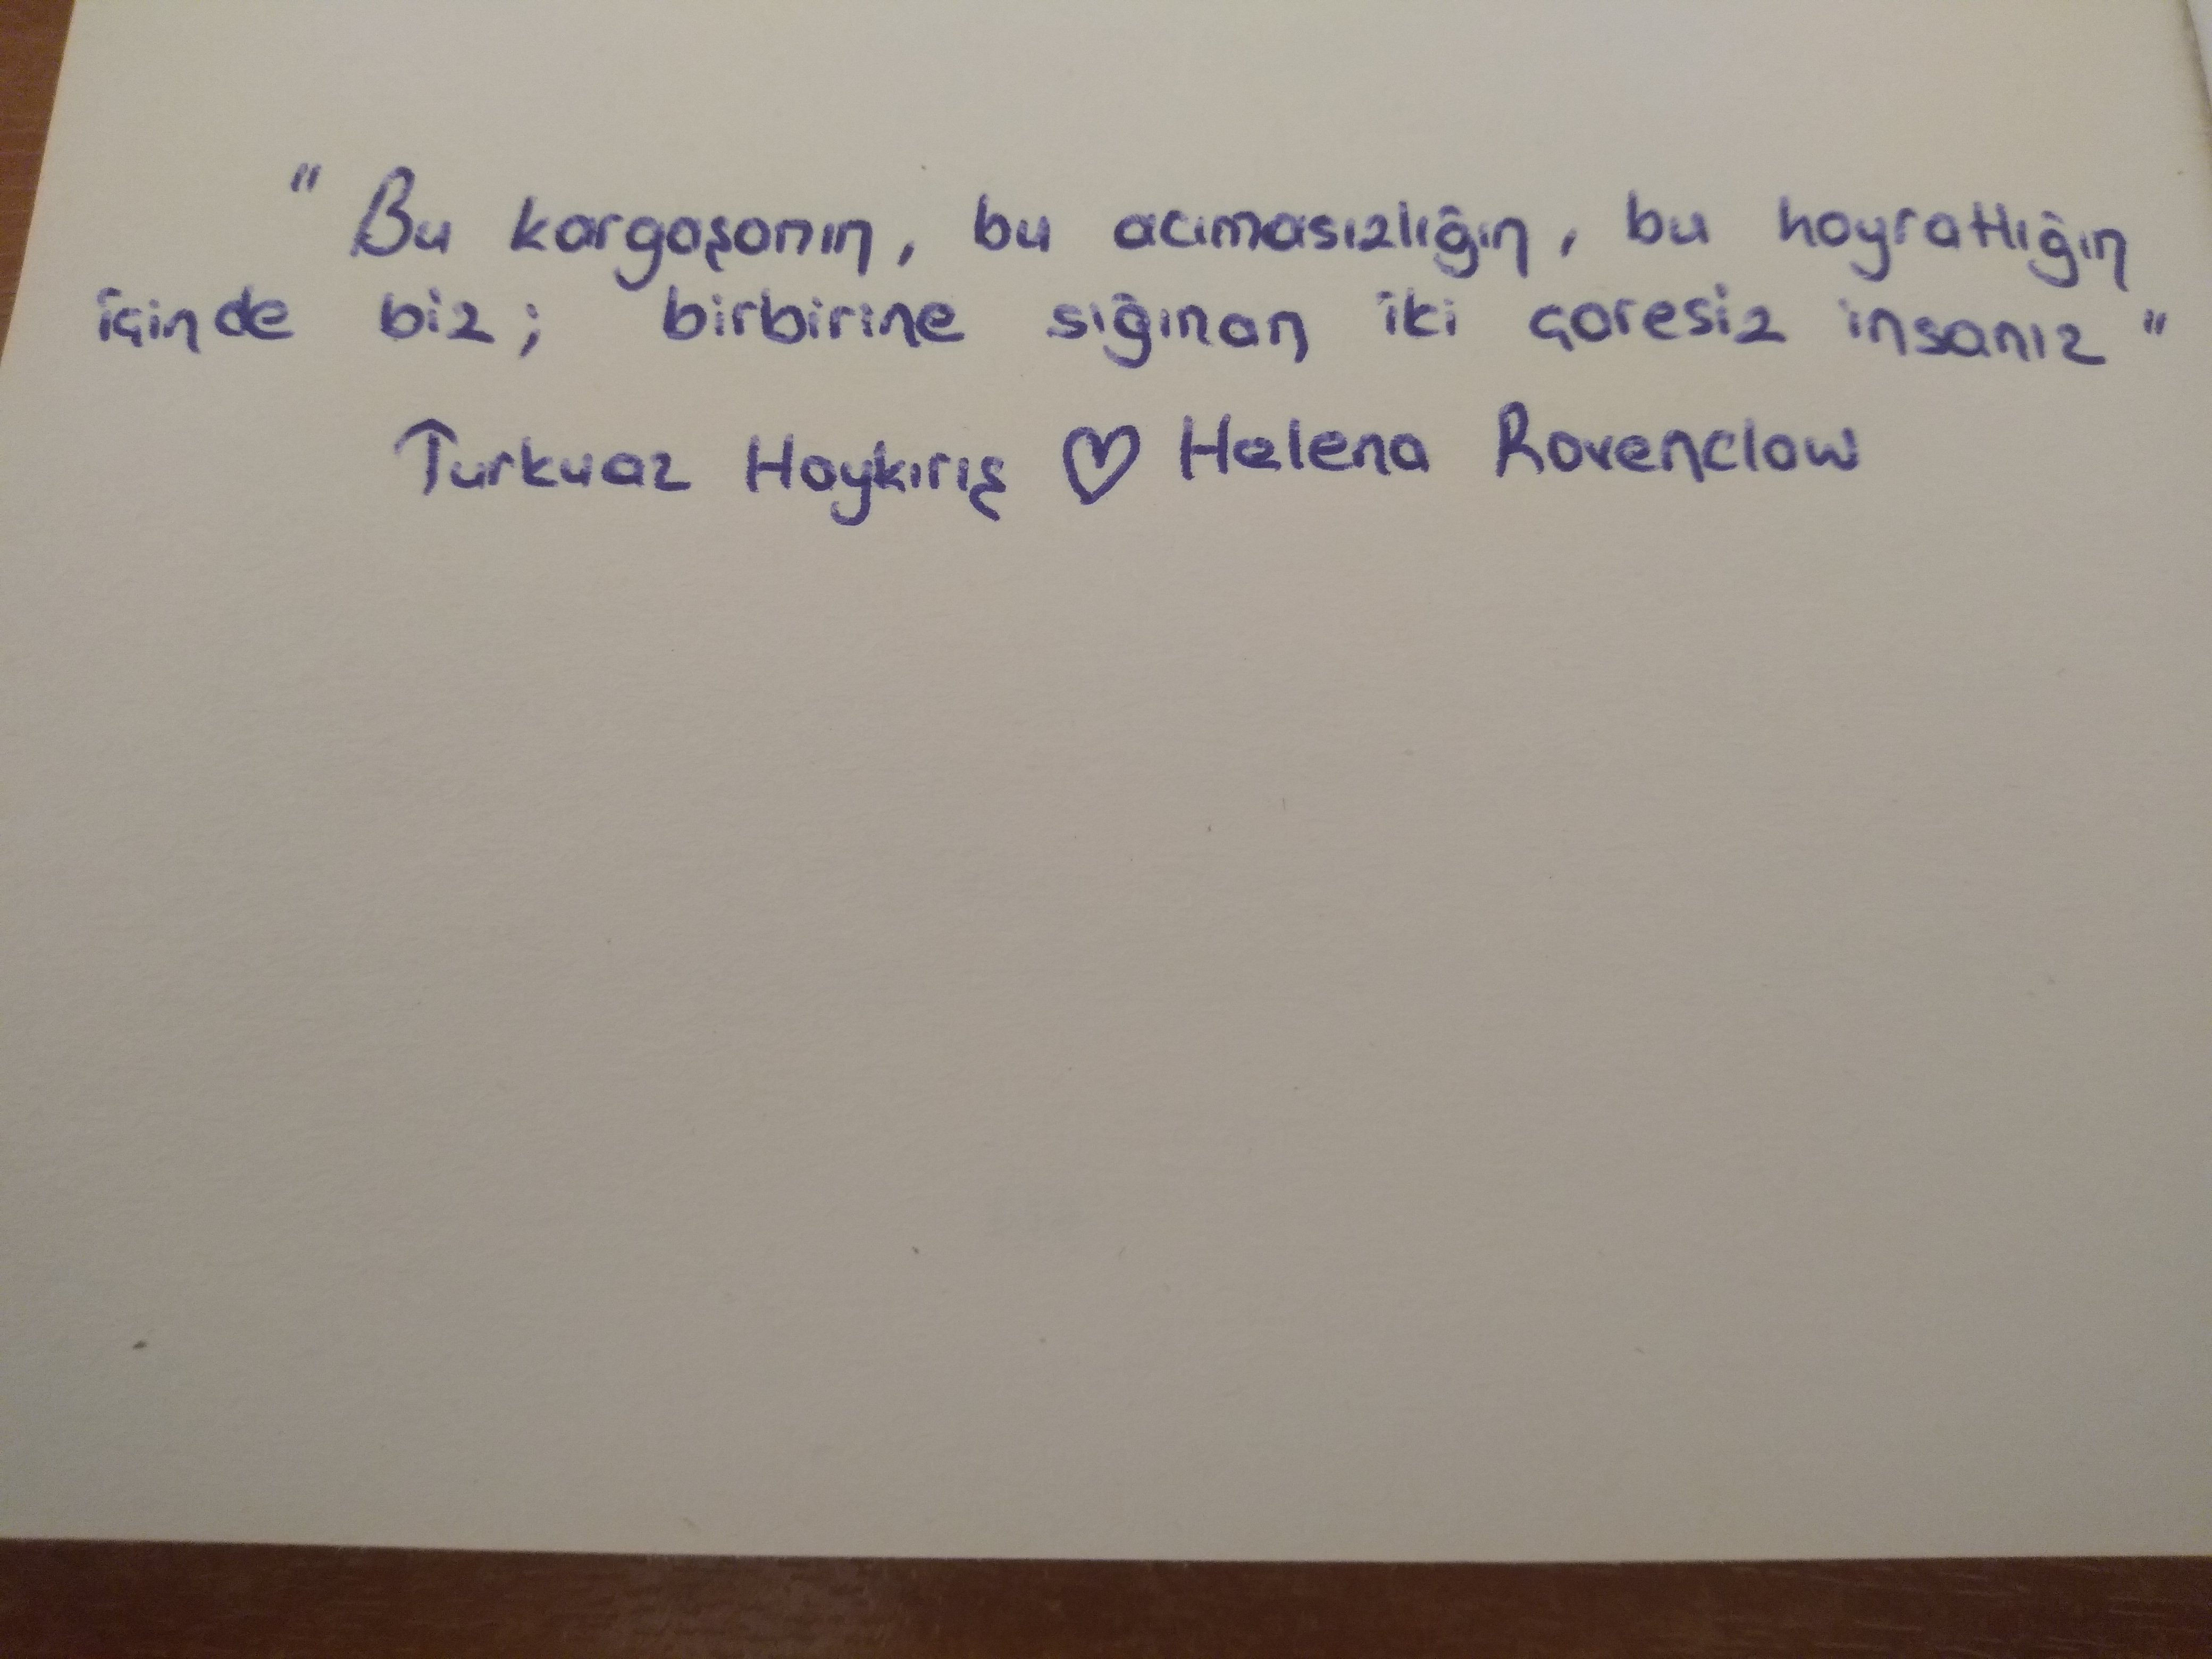 " Bu kargaşanın, bu acımasızlığın, bu hoyratlığın
içinde biz; birbirine sığınan iki çaresiz insanız "
Turkuaz Haykırış ♡ Helena Ravenclaw